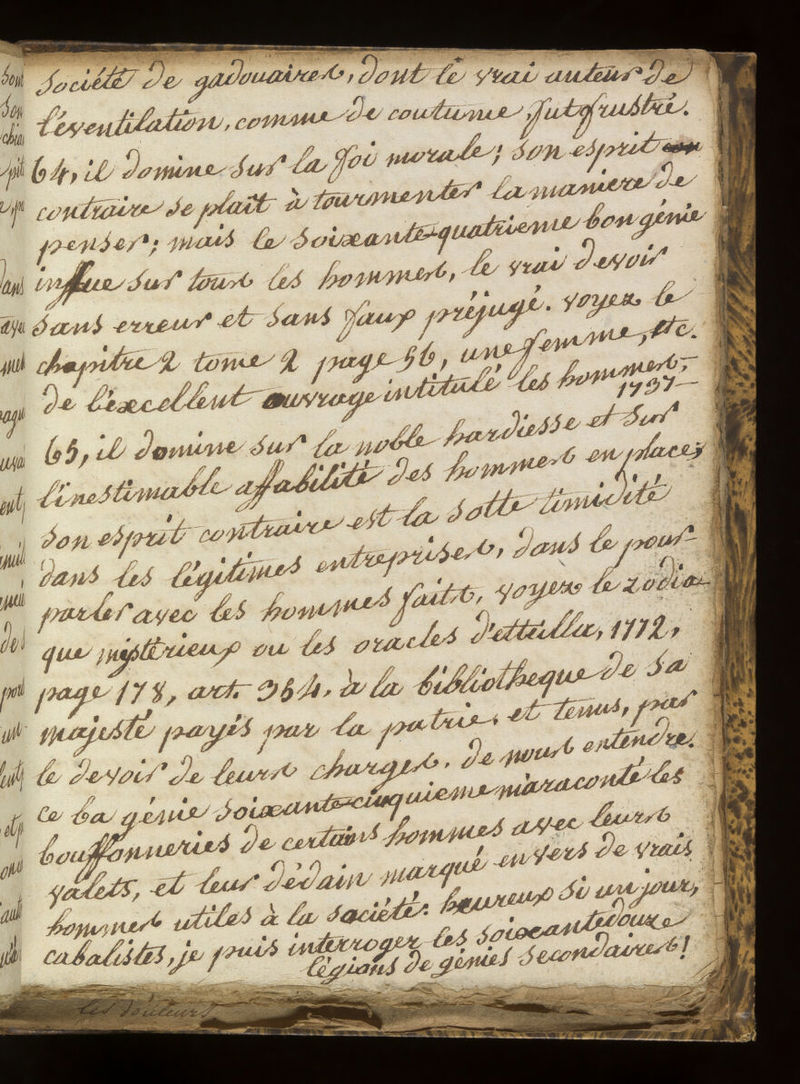 Société de gadouaires, dont le vrai auteur de
l'éventilation, comme de coutume, fut frustré.
64, il domine sur la foi morale; son esprit
contraire se plaît à tourmenter la maniere de
penser; mais le soixante-quatrieme bon génie
influe sur tous les hommes, le vrai devoir
sans erreur et sans faux préjugé. voyez le
chapitre 2 tome 2 page 56, une femme, etc.
de l'éxcellent ouvrage intitulé les hommes,
1737
65, il domine sur la noble hardiesse et sur
l'inestimable affabilité des hommes en place;
son esprit contraire est la sotte timidité
dans les légitimes entreprises, dans le pour-
parler avec les hommes faits, voyez le zodia-
que mistérieux ou les oracles d'etteilla, 1772,
page 178, art. 354, à la bibliotheque de sa
majesté payés par la patrie, et tenus, par
le devoir de leurs charges, de nous entendre.
ce 6a génie soixante-cinquieme m'a raconté les
bouffonneries de certains hommes avec leurs
valets, et leur dédain marqué envers de vrais
hommes utiles à la saciété: heureux si un jour,
cabalistes, je puis interroger les soixantedouze
légions de génies secondaires!
les douleurs